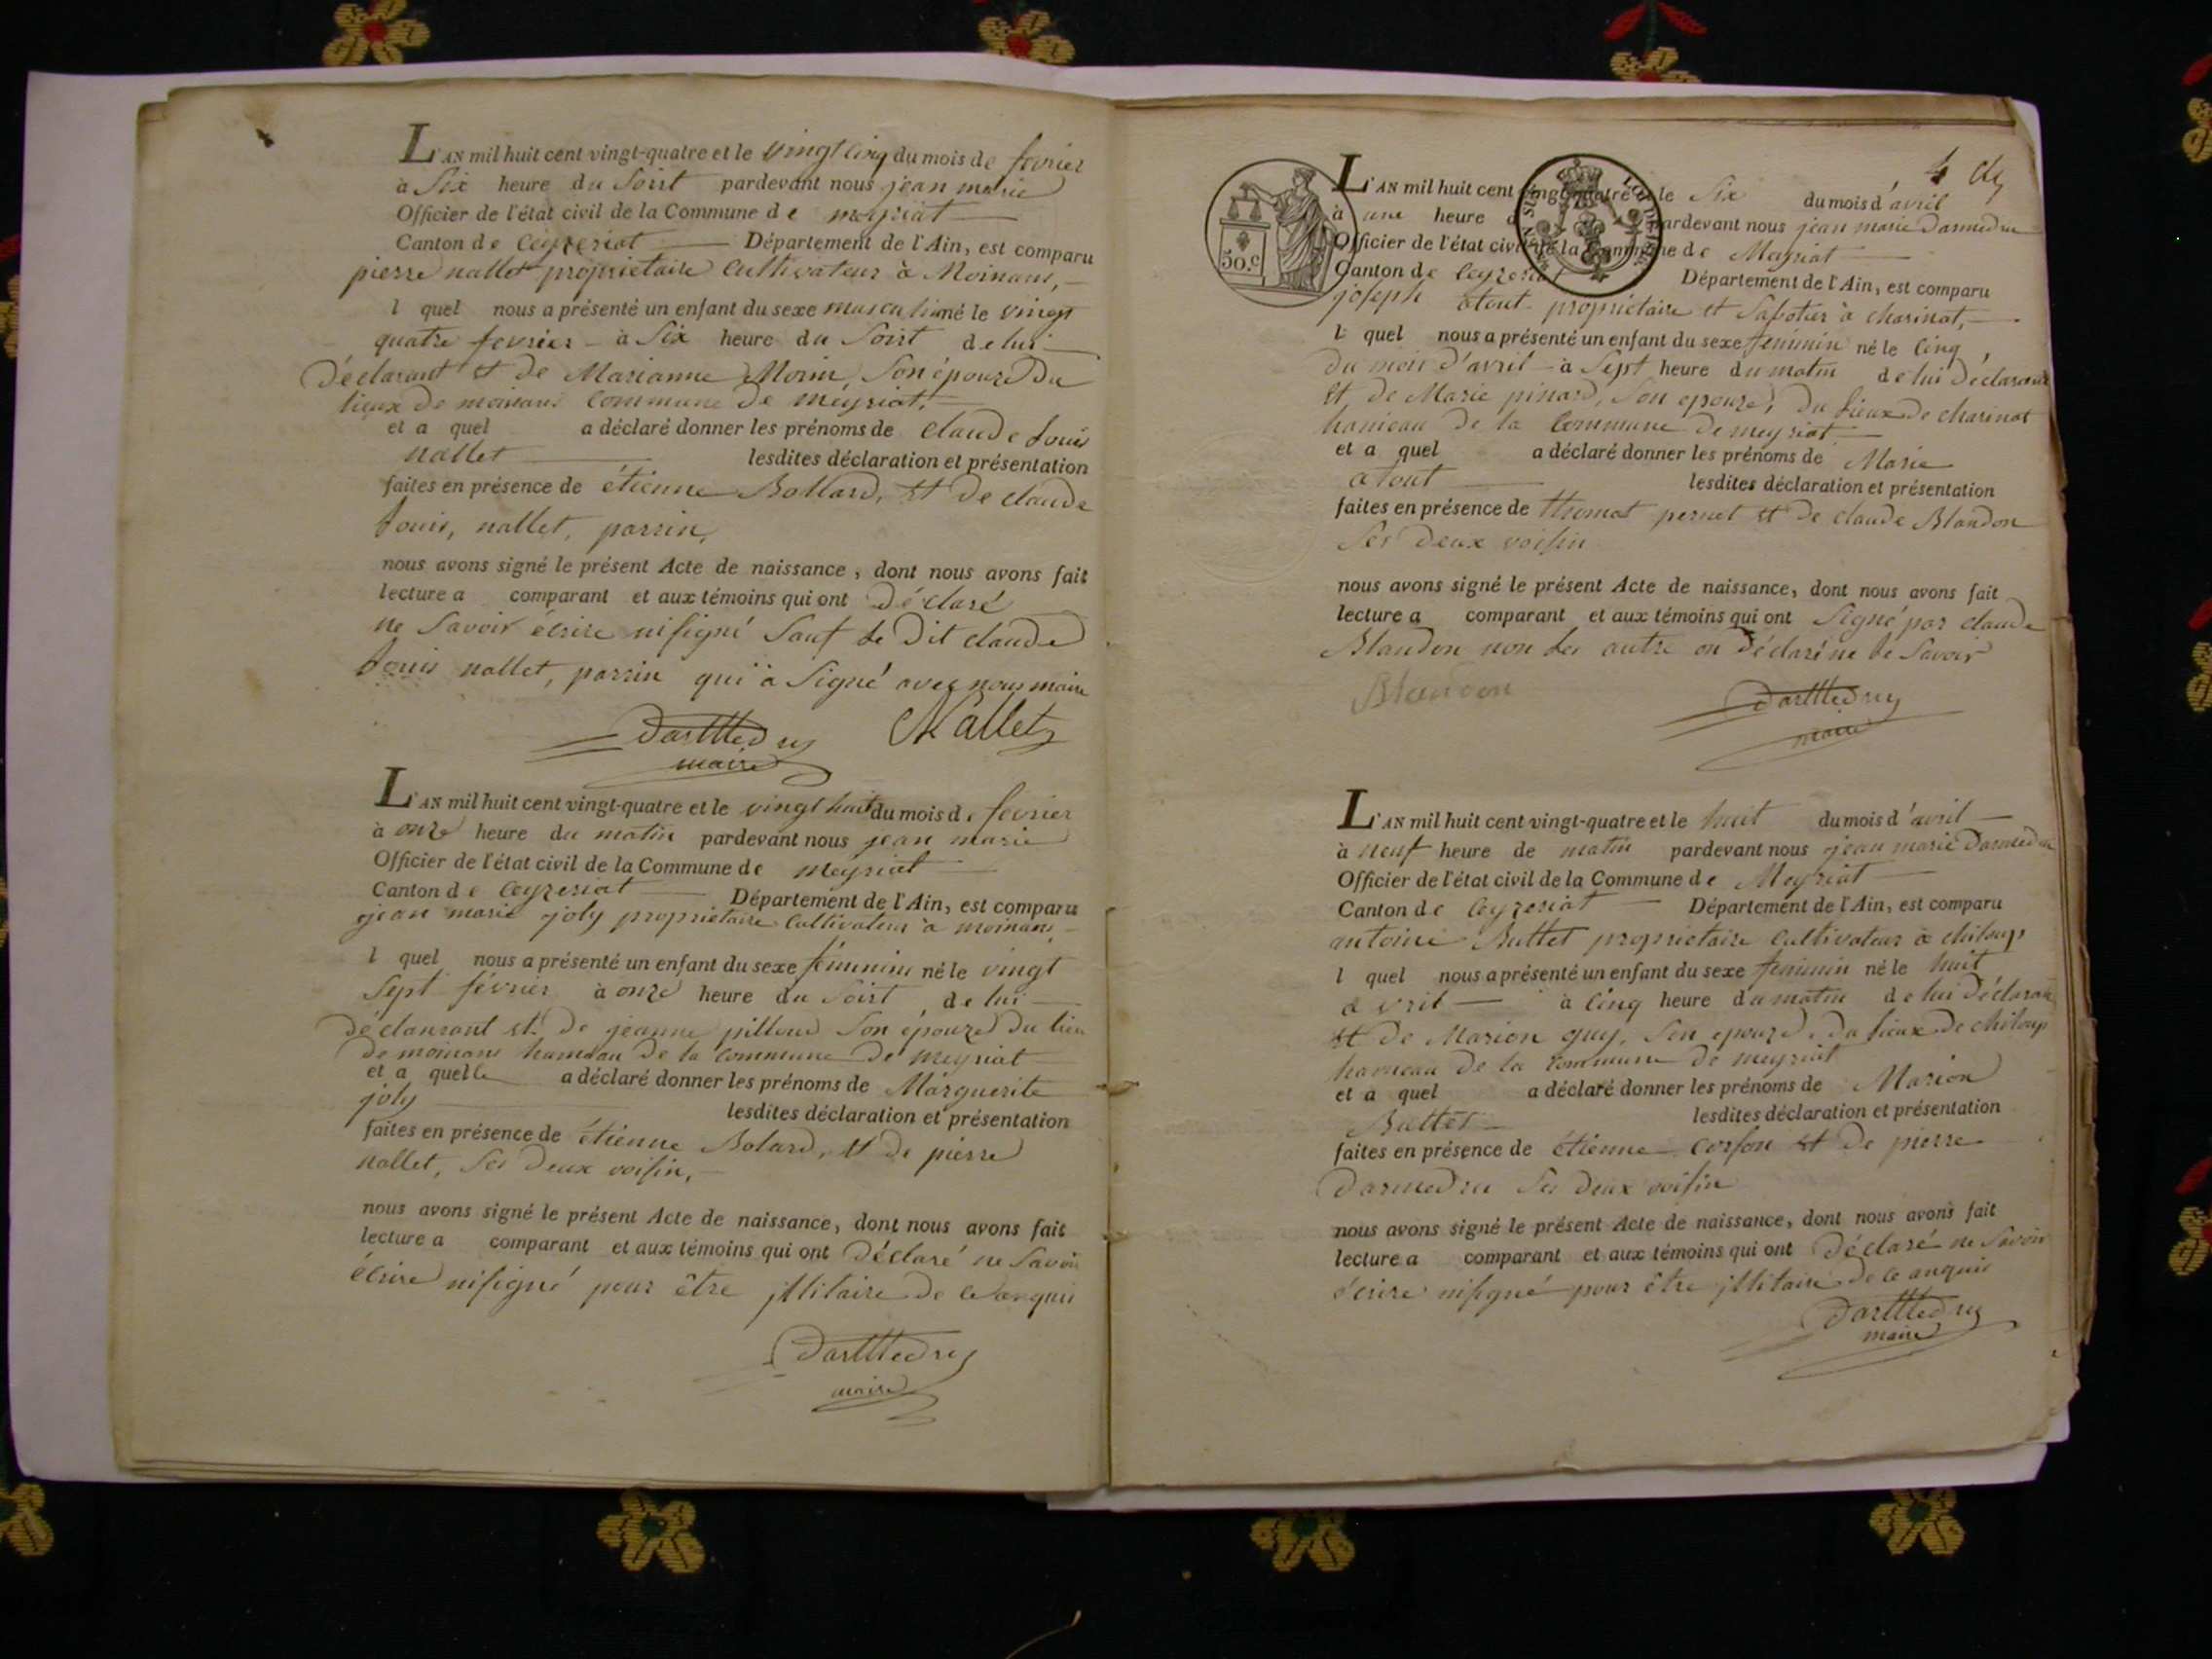 L'AN mil huit cent vingt-quatre et le vingt cinq du mois de fevrier
à Six heure du Soirt pardevant nous jean marie
Officier de l'état civil de la Commune de meyriat
Canton de Ceyzeriat Département de l'Ain, est comparu
pierre nallet propriétaire Cultivateur à Moinans,
l quel nous a présenté un enfant du sexe masculin né le vingt
quatre fevrier à Six heure du Soirt de lui
Déclarant et de Marianne Morin, Son épouze Du
lieux De moinans Commune De meyriat,
et a quel a déclaré donner les prénoms de Claude Louis
nallet lesdites déclaration et présentation
faites en présence de étienne Bollard, et De claude
Louis, nallet, parrin,
nous avons signé le présent Acte de naissance, dont nous avons fait
lecture a comparant et aux témoins qui ont Déclaré
ne Savoir écrire nisigné Sauf Le Dit claude
Louis nallet, parrin qui à Signé avec nous maire
DarMedru Nallet
maire
L'AN mil huit cent vingt-quatre et le vingt huit du mois de fevrier
à onze heure du matin pardevant nous jean marie
Officier de l'état civil de la Commune de meyriat
Canton de Ceyzeriat Département de l'Ain, est comparu
jean marie joly propriétaire Cultivateur à moinans,
l quel nous a présenté un enfant du sexe féminin né le vingt
Sept février à onze heure du Soirt de lui
déclarant et De jeanne pilloud Son épouze Du lieu
De moinans hameau De la Commune De meyriat
et a quelle a déclaré donner les prénoms de Marguerite
joly lesdites déclaration et présentation
faites en présence de étienne Bolard, et De pierre
nallet, Ses Deux voisin,
nous avons signé le présent Acte de naissance, dont nous avons fait
lecture a comparant et aux témoins qui ont Déclaré ne Savoir
écrire nisigné pour être jllitaire De ce anquis
DarMedru
maire
4
50.c
L'AN mil huit cent vingt-quatre et le Six du mois d'avril
à une heure d pardevant nous jean marie Darmedru
Officier de l'état civil de la Commune de Meyriat
Canton de Ceyzeriat Département de l'Ain, est comparu
joseph atout propriétaire et Sabotier à charinat,
l quel nous a présenté un enfant du sexe feminin né le Cinq
Du mois d'avril à Sept heure du matin de lui Déclarant
et De Marie pinard, Son epouze, Du Lieux De charinat
hameau De la Commune De meyriat
et a quel a déclaré donner les prénoms de Marie
atout lesdites déclaration et présentation
faites en présence de thomat pernet et De claude Blandon
Ses Deux voisin
nous avons signé le présent Acte de naissance, dont nous avons fait
lecture a comparant et aux témoins qui ont Signé par claude
Blandon non Les autre on Déclaré ne Le Savoir
Blandon DarMedru
maire
L'AN mil huit cent vingt-quatre et le huit du mois d'avril
à neuf heure de matin pardevant nous jean marie Darmedru
Officier de l'état civil de la Commune de Meyriat
Canton de Ceyzeriat Département de l'Ain, est comparu
antoine Buttet propriétaire Cultivateur à chiloup
l quel nous a présenté un enfant du sexe feminin né le huit
avril à Cinq heure du matin de lui Déclarant
et De Marion guy, Son epouze, Du Lieux De chiloup
hameau De la Commune De meyriat
et a quel a déclaré donner les prénoms de Marion
Buttet lesdites déclaration et présentation
faites en présence de étienne Corson et De pierre
Darmedru Ses Deux voisin
nous avons signé le présent Acte de naissance, dont nous avons fait
lecture a comparant et aux témoins qui ont Déclaré ne Savoir
écrire nisigné pour être jllitaire De ce anquis
DarMedru
maire